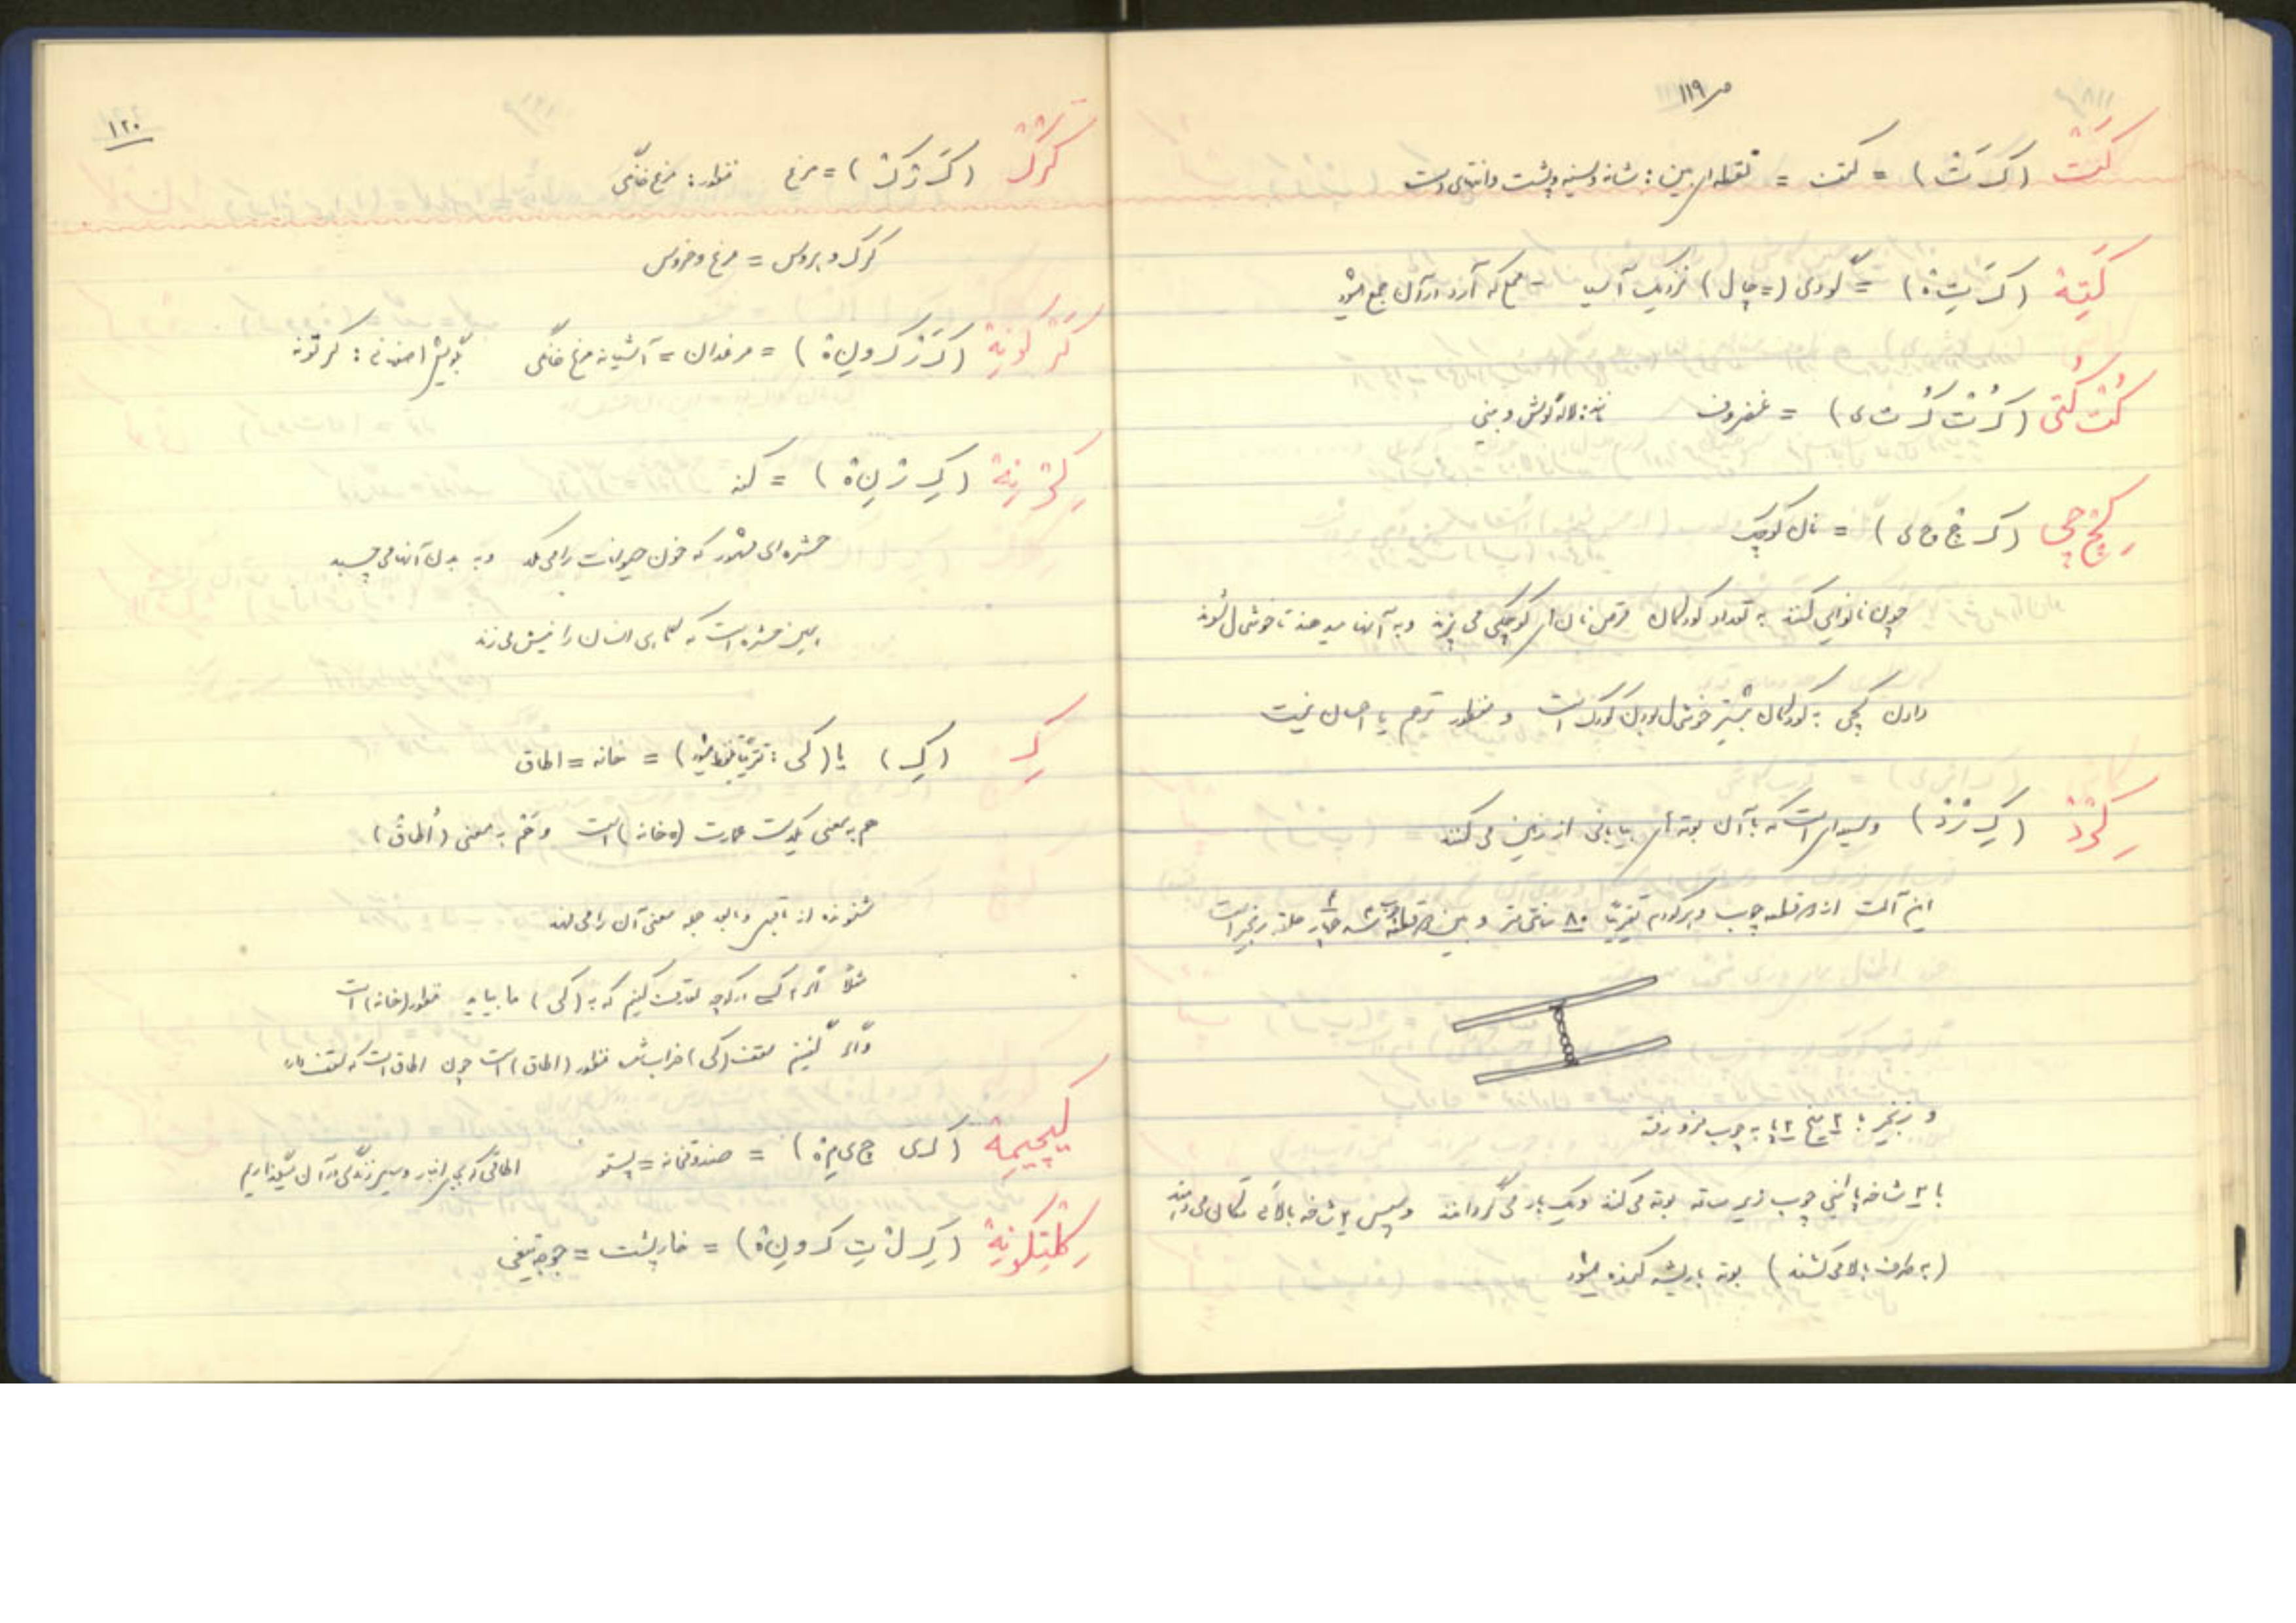 ص ۱۱۹
کَتْ (کَ تْ) = کتف = نقطه‌ای بین: شانه و سینه و پشت و انتهای دست
کَتِۀ (کَ تِ ۀ) = گودی (= چال) نزدیک آسیا که آرد در آن جمع میشود
کُتْ کُتی (کُ تْ کُ ت ی) = غضروف مانند: لالهٔ گوش و بینی
کِچْ چی (کِ چْ چ ی) = نان کوچک
چون نانوایی کنند به تعداد کودکان قرص نان‌های کوچکی می پزند و به آنها میدهند تا خوشحال شوند
دادن کچی به کودکان بیشتر خوشحال بودن کودک است و منظور ترحم یا احسان نیست
کِرْدْ (کِ رْ دْ) وسیله‌ای است که با آن بوته‌های بیابانی از زمین می کنند
این آلت از ۲ قطعه چوب و هرکدام تقریباً ۸۰ سانتی متر و بین ۲ قطعه چوب ۳ چهار حلقه زنجیر است
و زنجیر با ۲ میخ به چوب فرو رفته
با ۲ شاخه پائینی چوب زیر ساقه بوته می کنند و یک بار می گردانند و سپس ۲ شاخه بالائی تکان می دهند
(به طرف بالا می کشند) بوته با ریشه کنده میشود
۱۲۰
کَرْکْ (کَ رْ کْ) = مرغ منظور: مرغ خانگی
کرک و بروس = مرغ و خروس
کَرْکُونِۀ (کَ رْ ک و نِ ۀ) = مرغدان = آشیانه مرغ خانگی بگویش اصفهانی: کرتونه
کِرْنِۀ (کِ رْ نِ ۀ) = کنه
حشره‌ای مشهور که خون حیوانات را می مکد و به بدن آنها می چسبد
این حشره است که گاهی انسان را نیش می زند
کِ (کِ) یا (کی: تقریباً تلفظ میشود) = خانه = اطاق
هم به معنی یکدست عمارت (= خانه) است و هم به معنی (اُطاق)
شنونده از ماقبل و مابعد جمله معنی آن را می فهمد
مثلاً اگر کسی در کوچه تعارف کنیم که به (کی) ما بیاید منظور (خانه) است
و اگر گفتیم سقف (کی) خراب شد منظور (اطاق) است چون اطاق است که سقف دارد
کیچیمۀ (ک ی چ ی مِ ۀ) = صندوقخانه = پستو اطاقی که برای انبار وسایل زندگی در آن میگذاریم
کِلْتِکُونِۀ (کِ لْ تِ ک و نِ ۀ) = خارپشت = جوجه تیغی